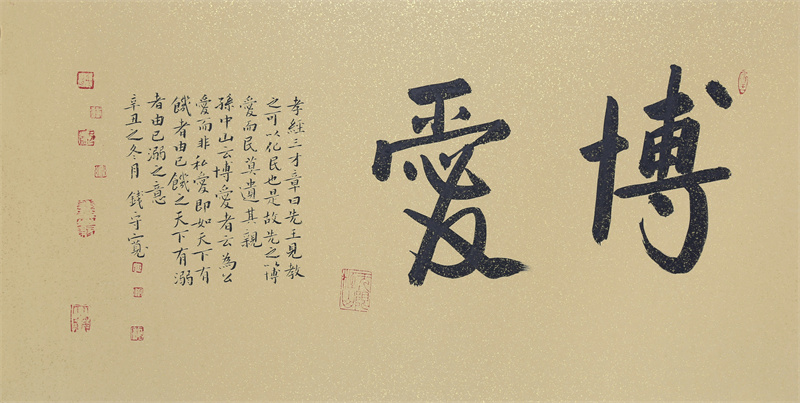 博愛
孝經三才章曰先王見教
之可以化民也是故先之以博
愛而民莫遺其親
孫中山云博愛者云為公
愛而非私愛即如天下有
饑者由己饑之天下有溺
者由己溺之意
辛丑之冬月錢守